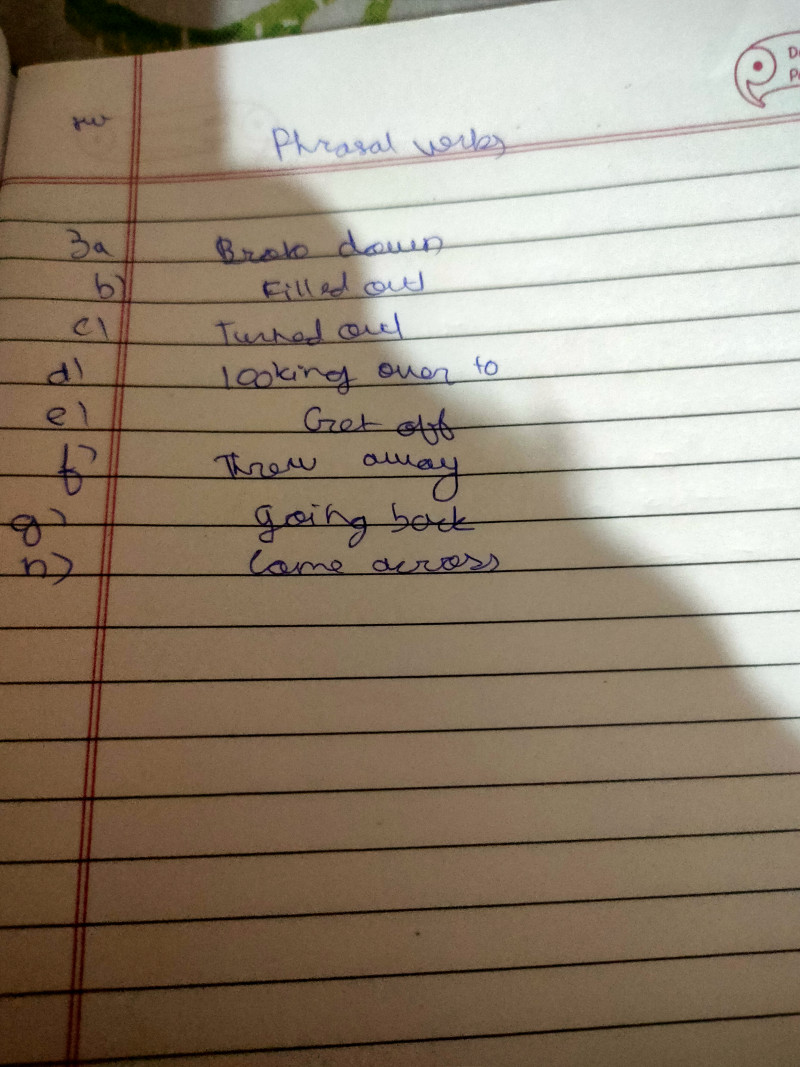 HW
Phrasal verbs
3a Brok down
b) Filled out
c) Turned out
d) looking over to
e) Get off
f) Threw away
g) Going back
h) Came across